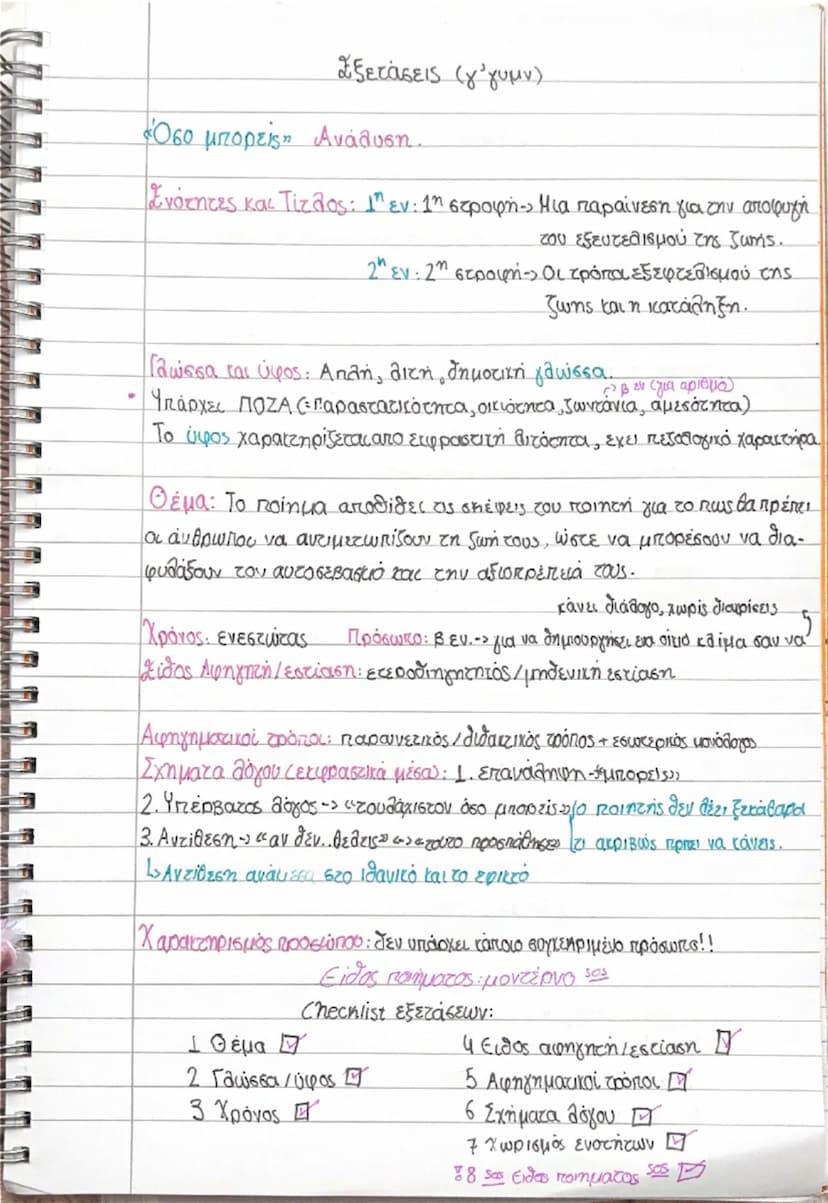 Εξετάσεις (γ'γυμν)
«Όσο μπορείς» Ανάλυση.
Ενότητες και Τίτλος: 1η εν: 1η στροφή-> Μια παραίνεση για την αποφυγή
του εξευτελισμού της ζωής.
2η εν: 2η στροφή-> Οι τρόποι εξεφτελισμού της
ζωης και η κατάληξη.
Γλώσσα και ύφος: Απλή, λιτή, δημοτική γλώσσα.
-> β εν (για αριθμό)
• Υπάρχει ΠΟΖΑ (=Παραστατικότητα, οικιότητα, ζωντάνια, αμεσότητα)
Το ύφος χαρακτηρίζεται απο εκφραστική λιτότητα, έχει πεζολογικό χαρακτήρα
Θέμα: Το ποίημα αποθίθει τις σκέψεις του ποιητή για το πως θα πρέπει
οι άνθρωποι να αντιμετωπίζουν τη ζωή τους, ώστε να μπορέσουν να δια-
φυλάξουν τον αυτοσεβασμό και την αξιοπρέπειά τους.
κάνει διάλογο, χωρίς διακρίσεις
Χρόνος: ενεστώτας Πρόσωπο: β εν.-> για να δημιουργήσει ένα οίκιο κλίμα σαν να
Είδος Αφηγητή/εστίαση: ετεροδιηγητικός/μηδενική εστίαση
Αφηγηματικοί τρόποι: παραινετικός/διδακτικός τρόπος + εσωτερικός μονόλογος
Σχήματα λόγου (εκφραστικά μέσα): 1. επανάληψη-> «μπορείς»
2. Υπέρβατος λόγος-> «τουλάχιστον όσο μπορείς» ο ποιητής δεν θέτει ξεκάθαρα
3. Αντίθεση-> «αν δεν..θελεις» <-> «τουτο προσπάθησε» τι ακριβώς πρπει να κάνεις.
↳Αντίθεση ανάμεσα στο ιδανικό και το εφικτό
Χαρακτηρισμός προσώπου: δεν υπάρχει κάποιο συγκεκριμένο πρόσωπο!!
Είδος ποιήματος: μοντέρνο sos
Checklist εξετάσεων:
1 Θέμα ☑
2 Γλώσσα/ύφος ☑
3 Χρόνος ☑
4 Ειδος αφηγητή/εστίαση ☑
5 Αφηγηματικοί τρόποι ☑
6 Σχήματα λόγου ☑
7 Χωρισμός ενοτήτων ☑
8 sos Ειδος ποιηματος sos ☑